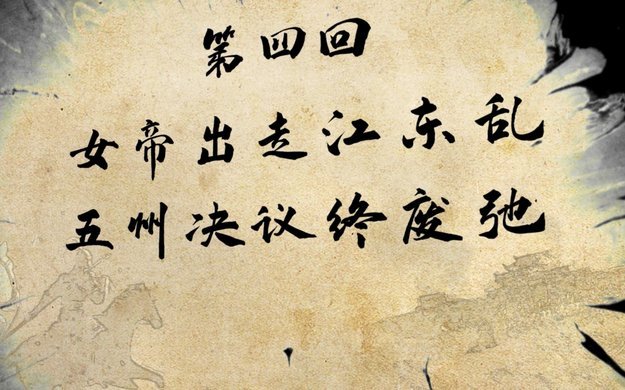 第四回
女帝出走江东乱
五州决议终废弛